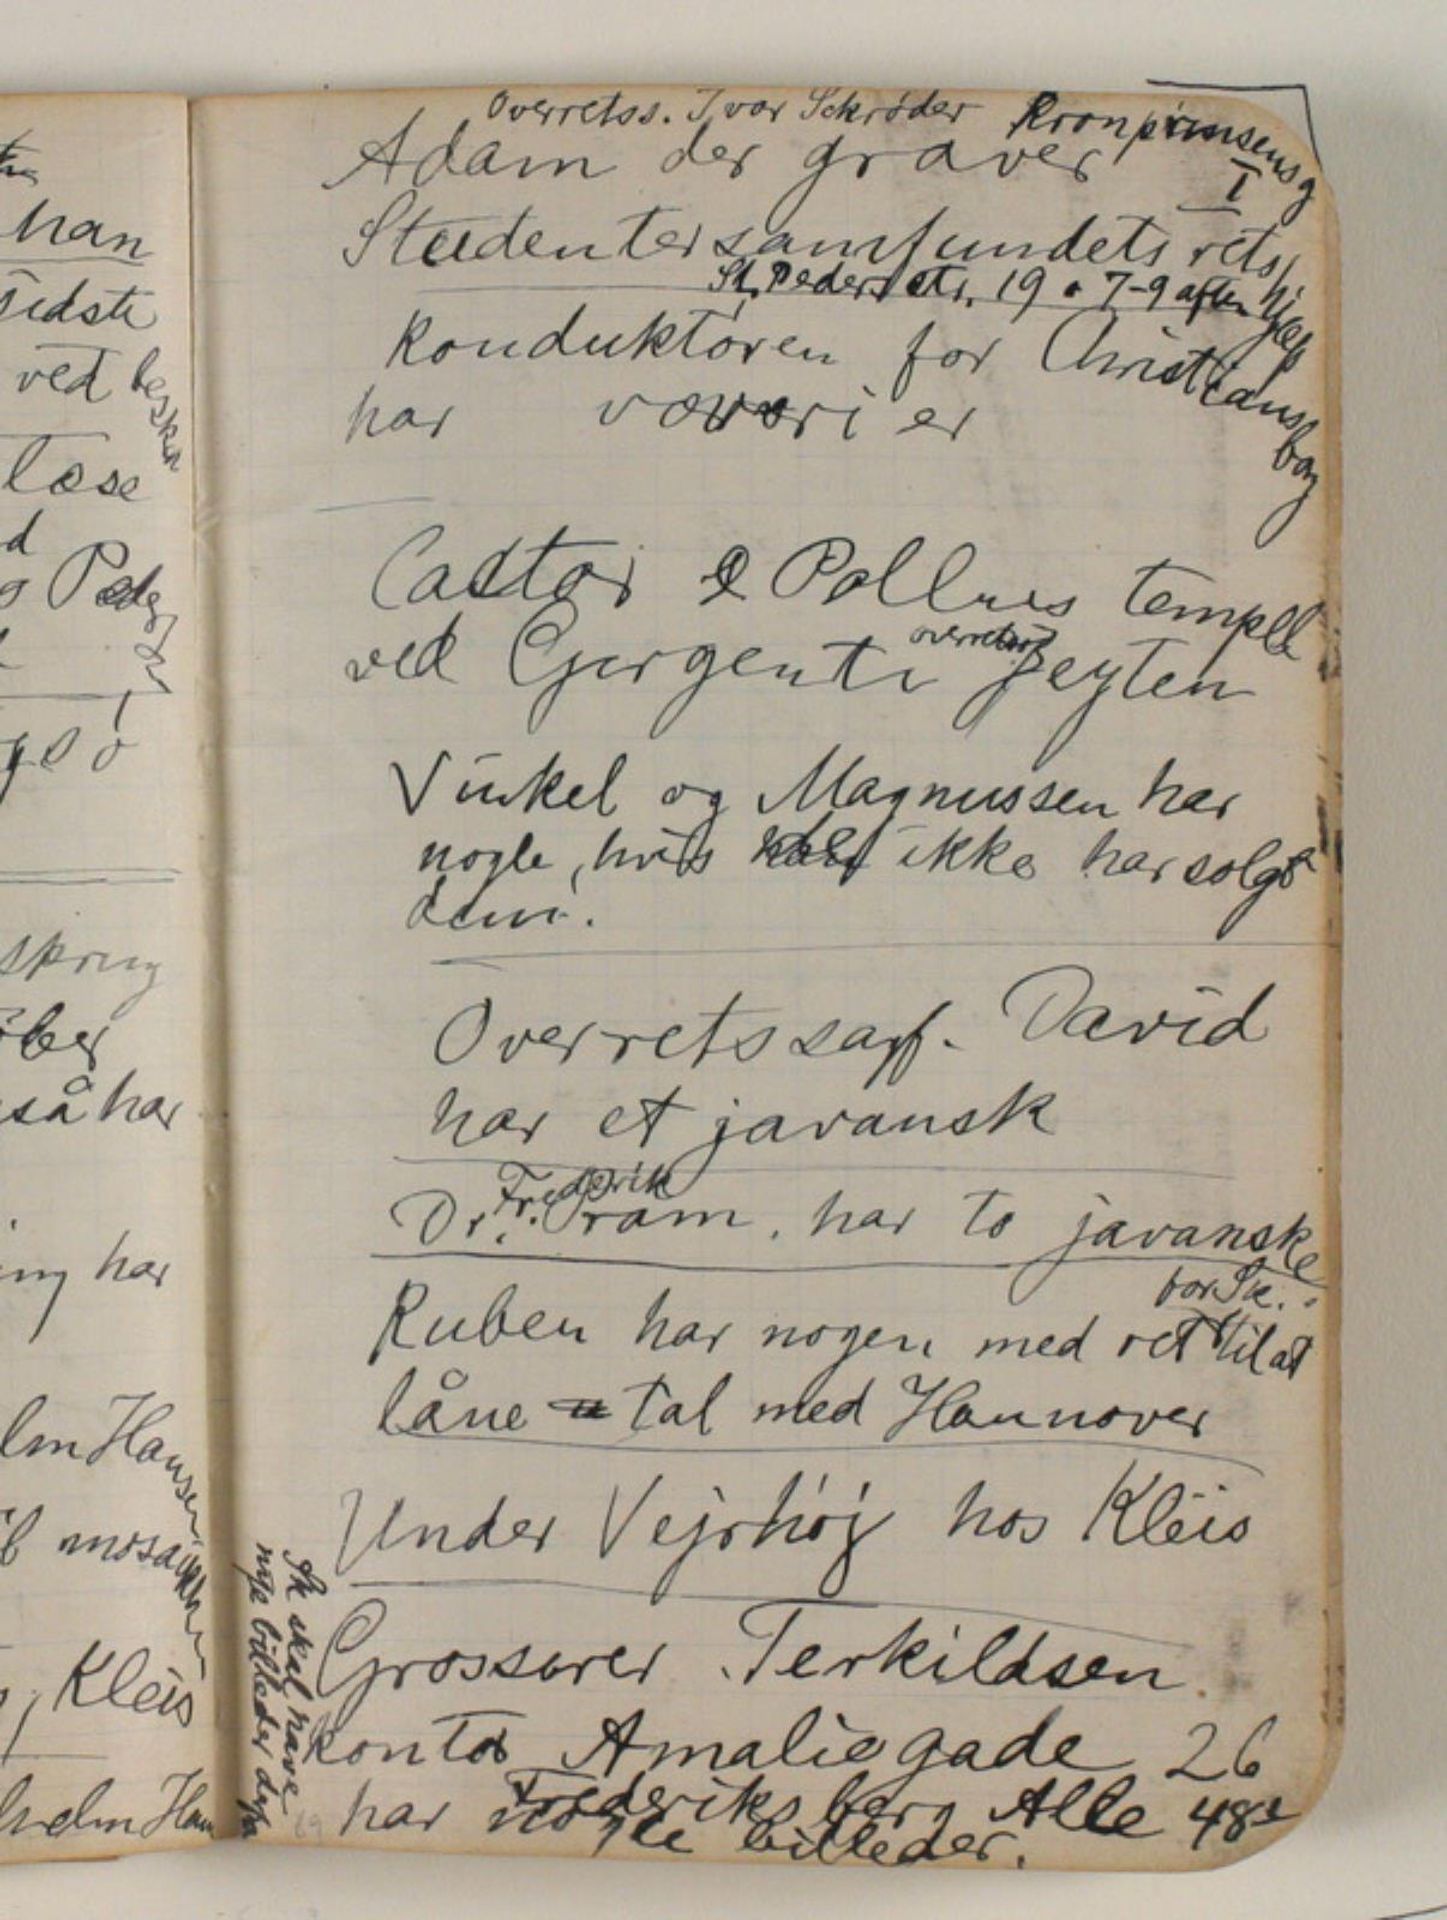 han
sidste
ved
læse
d
Peder
gsö
spring
så har
ing har
lm Hansen
Kleis
helm Han
Overretss. Ivar Schrøder Kronprinsensg
I
Adam der graver
Studentersamfundets retshjælp
St. Pederstr. 19 . 7-9 aften
Konduktøren for Christiansborg
har værøri er
Castor & Pollux tempel
ved Girgenti overretss Zeyten
Vinkel og Magnussen har
nogle, hvis ikke har solgt
dem.
Overretssagf. David
har et javansk
Frederik
Dr. Fr. Pram. har to javanske
for Sk.
Ruben har nogen med ret til at
låne tal med Hannover
Under Vejrhøj hos Kleis
Grosserer Terkildsen
kontor Amaliegade 26
Frederiksberg Alle 48
har nogle billeder.
skal have
nye billeder